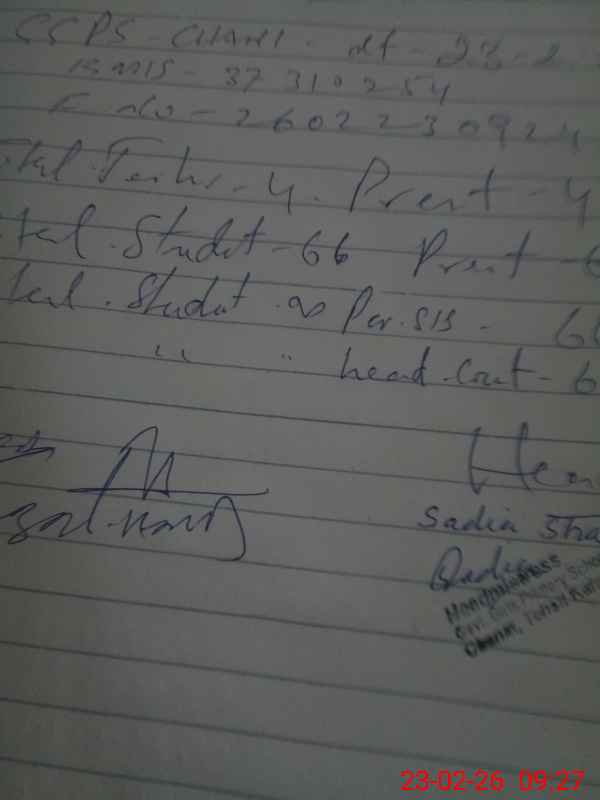 GGPS - CHANI. dt - 23-2
EMIS - 37310254
E no - 26022230924
Total Teachr - 4. Presnt - 4
Total Studnt - 66 Presnt - 6
Total Studnt as Per. SIS - 66
" " head Count - 6
Hea
Sadia Sha
Headmistress
Govt. Girls Primary School
Channi, Tehsil
23-02-26 09:27